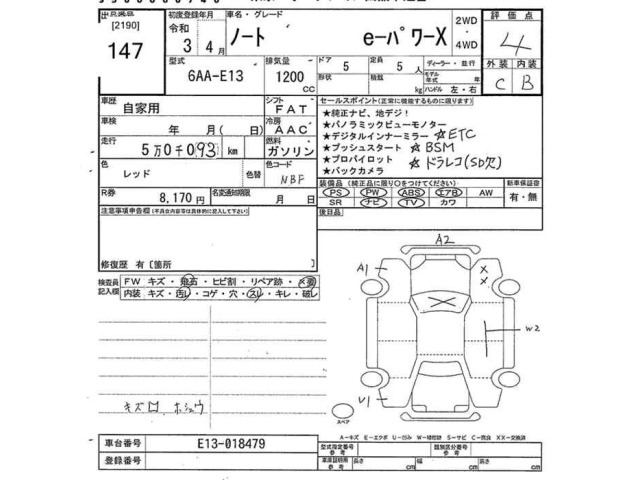 出品店
[2190]
147
初度登録年月
令和
3年 4月
車名・グレード
ノート e-パワーX
2WD
・
4WD
評価点
4
型式
6AA-E13
排気量
1200
CC
ドア
5
定員
5人
形状
積載
kg
ディーラー・並行
モデル年式 年
ハンドル 左・右
外装 内装
C B
車歴
自家用
シフト
FAT
車検
年 月( 日)
冷房
AAC
走行
5万0千093km
燃料
ガソリン
色
レッド
色替
色コード
NBF
R券
8,170円
名変通知期限
月 日
セールスポイント(正常に機能するものに限ります)
★純正ナビ、地デジ!
★パノラミックビューモノター
★デジタルインナーミラー ☆ETC
★プッシュスタート ☆BSM
★プロパイロット ☆ドラレコ(SD欠)
★バックカメラ
装備品(純正品に限り○をつけてください)
PS PW ABS エアB AW
SR ナビ TV カワ
新車保証書
有・無
後日品
注意事項申告欄(不具合内容等は具体的に記入して下さい)
修復歴 有〔箇所 〕
検査員
記入欄
FW キズ・飛石・ヒビ割・リペア跡・X要
内装 キズ・汚し・コゲ・穴・スレ・キレ・破し
キズ ロ ホシュウ
A2
A1
X
X
W2
U1
スペア
A-キズ E-エクボ U-凹み W-補修跡 S-サビ C-腐食 XX-交換済
車台番号
E13-018479
登録番号
型式指定番号
参考
類別区分番号
参考
車庫証明用
参考
長さ cm
幅 cm
高さ cm